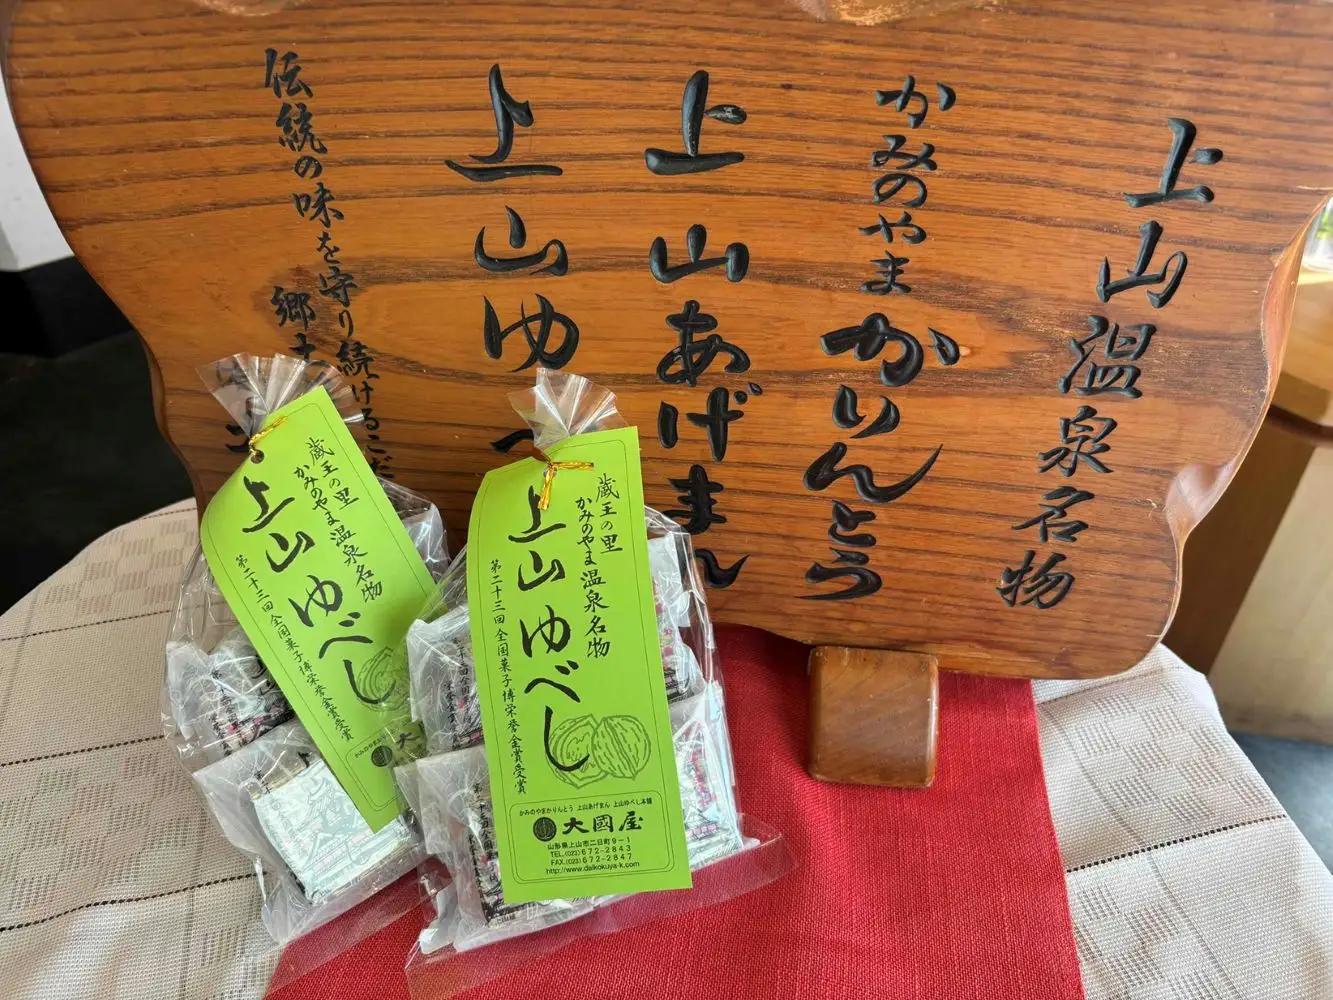 上山温泉名物
かみのやま
かりんとう
上山あげまん
上山ゆ
伝統の味を守り続けるこだ
郷土
蔵王の里
かみのやま温泉名物
上山ゆべし
第二十三回全国菓子博栄誉金賞受賞
かみのやま
大
蔵王の里
かみのやま温泉名物
上山ゆべし
第二十三回全国菓子博栄誉金賞受賞
かみのやまかりんとう 上山あげまん 上山ゆべし本舗
大國屋
山形県上山市二日町9-1
TEL.(023)672-2843
FAX.(023)672-2847
http://www.daikokuya-k.com